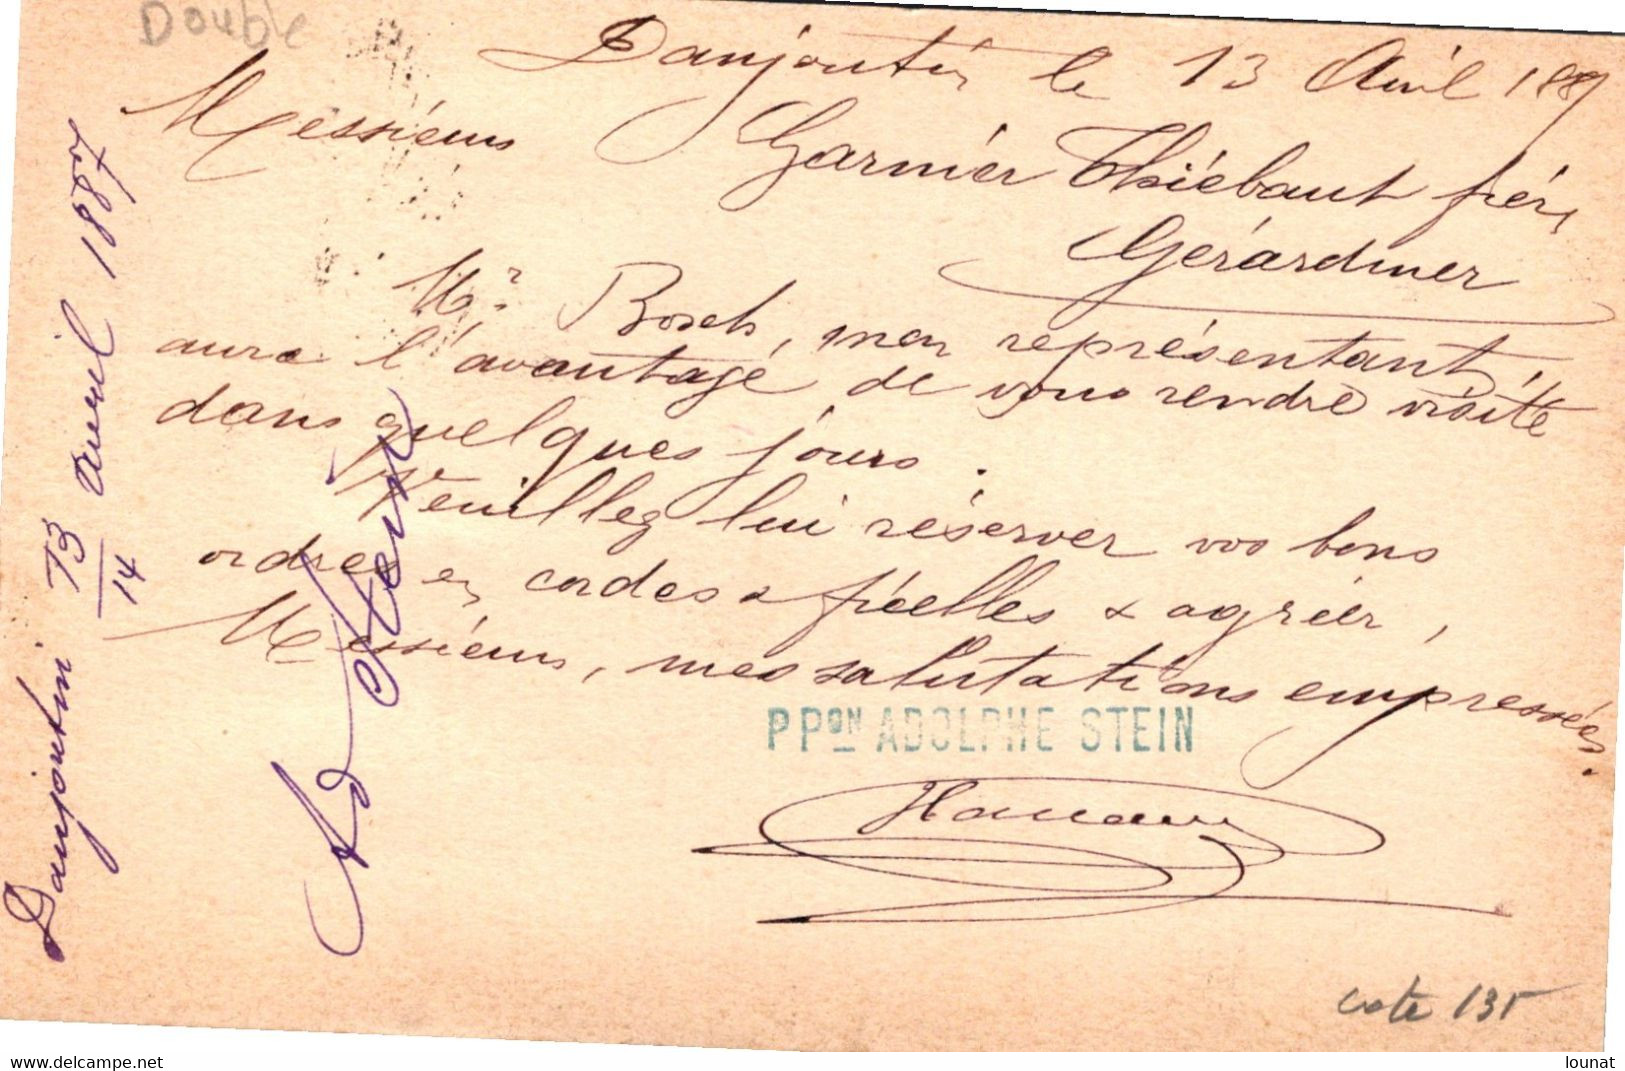 Double
Danjoutin le 13 Avril 1887
Messieurs Garnier Thiébaut frères
Gérardmer
Mr. Bosch, mon représentant,
aura l'avantage de vous rendre visite
dans quelques jours.
Veuillez lui réserver vos bons
ordres en cordes & ficelles & agréer,
Messieurs, mes salutations empressées.
P PON ADOLPHE STEIN
Danjoutin 13/14 Avril 1887
Ad Stein
cote 135
Website : www.delcampe.net
lounat